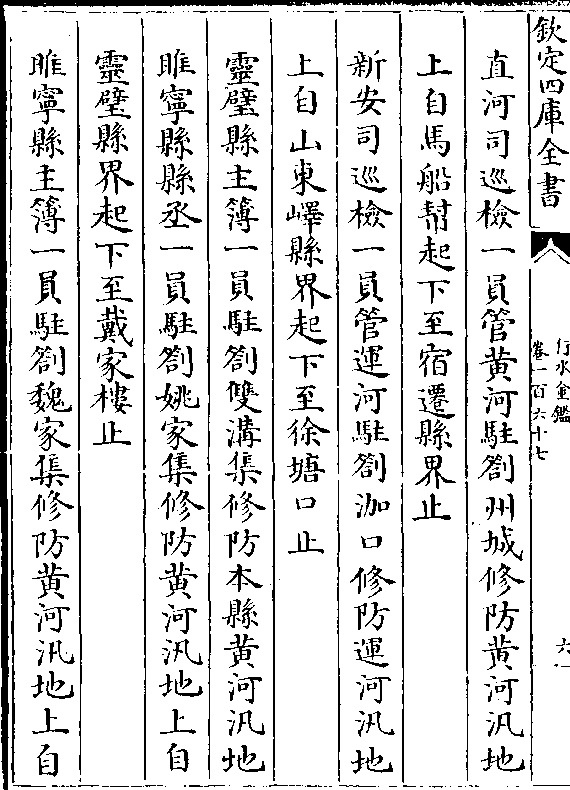 欽定四庫全書
行水金鑑
卷一百六十七
六
直河司巡檢一員管黄河駐劄州城修防黄河汛地
上自馬船幇起下至宿遷縣界止
新安司巡檢一員管運河駐劄泇口修防運河汛地
上自山東嶧縣界起下至徐塘口止
靈璧縣主簿一員駐劄雙溝集修防本縣黄河汛地
睢寧縣縣丞一員駐劄姚家集修防黄河汛地上自
靈璧縣界起下至戴家樓止
睢寧縣主簿一員駐劄魏家集修防黄河汛地上自